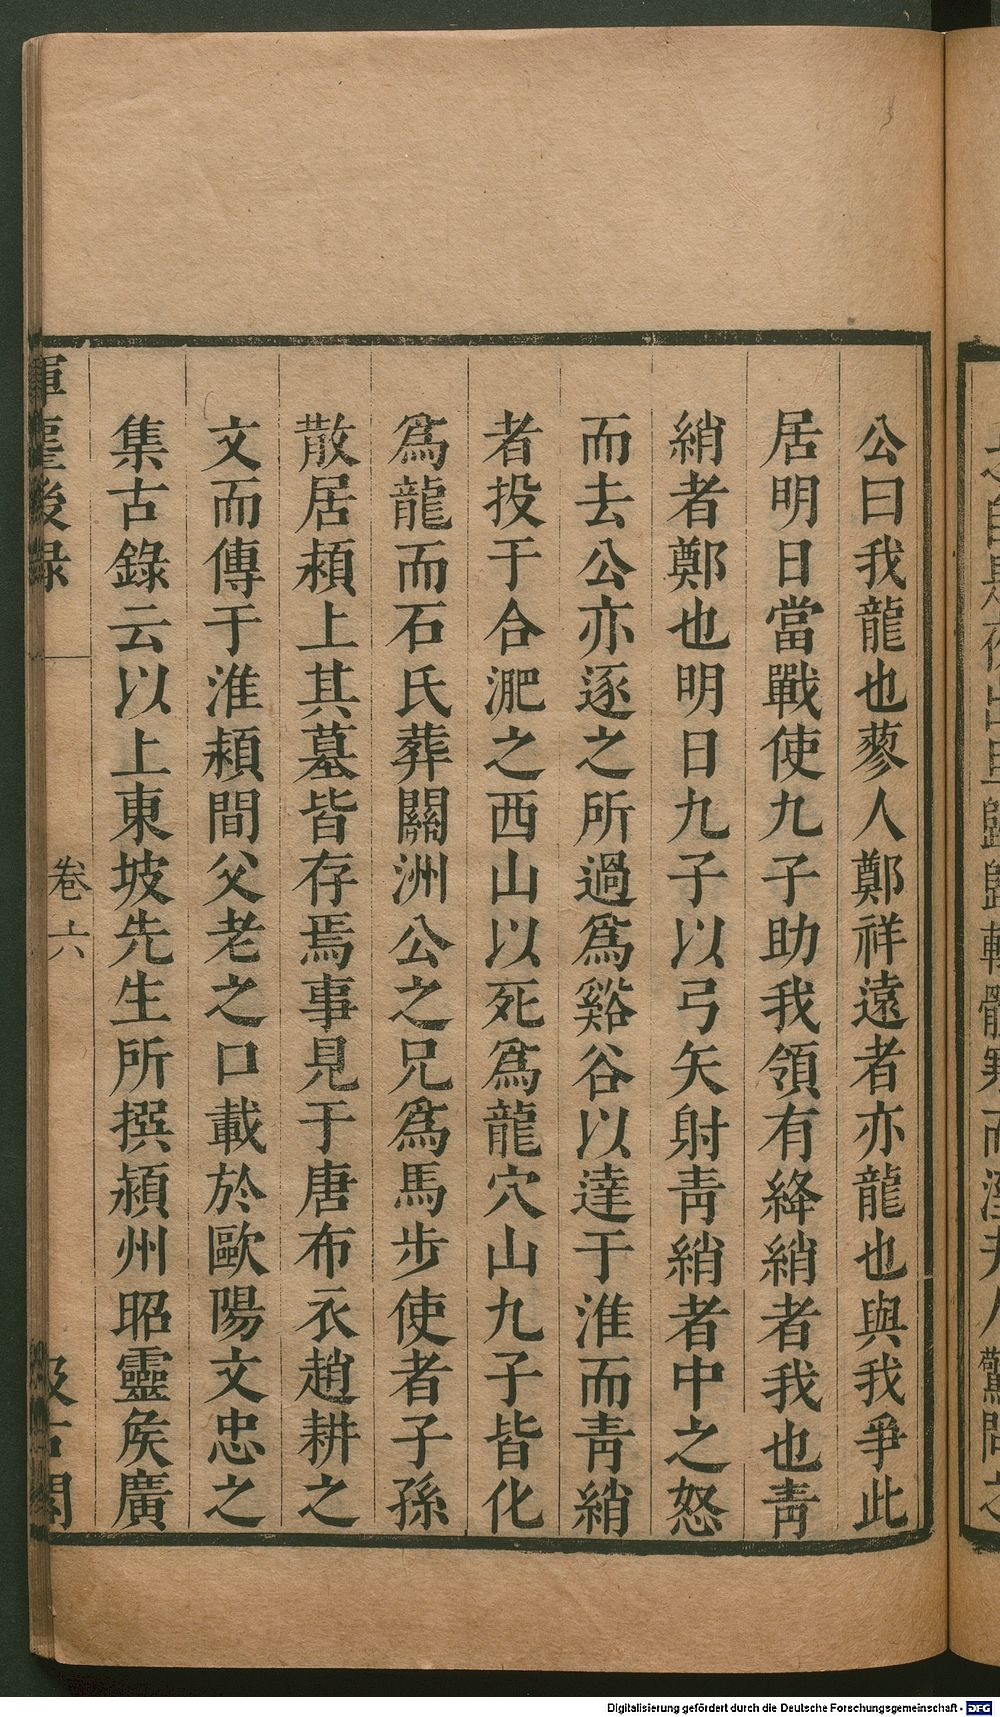 公曰我龍也蓼人鄭祥遠者亦龍也與我爭此
居明日當戰使九子助我領有絳綃者我也靑
綃者鄭也明日九子以弓矢射靑綃者中之怒
而去公亦逐之所過爲谿谷以達于淮而靑綃
者投于合淝之西山以死爲龍穴山九子皆化
爲龍而石氏葬關洲公之兄爲馬步使者子孫
散居潁上其墓皆存焉事見于唐布衣趙耕之
文而傳于淮潁間父老之口載於歐陽文忠之
集古錄云以上東坡先生所撰潁州昭靈矦廣
後錄
卷六
Digitalisierung gefördert durch die Deutsche Forschungsgemeinschaft - DFG